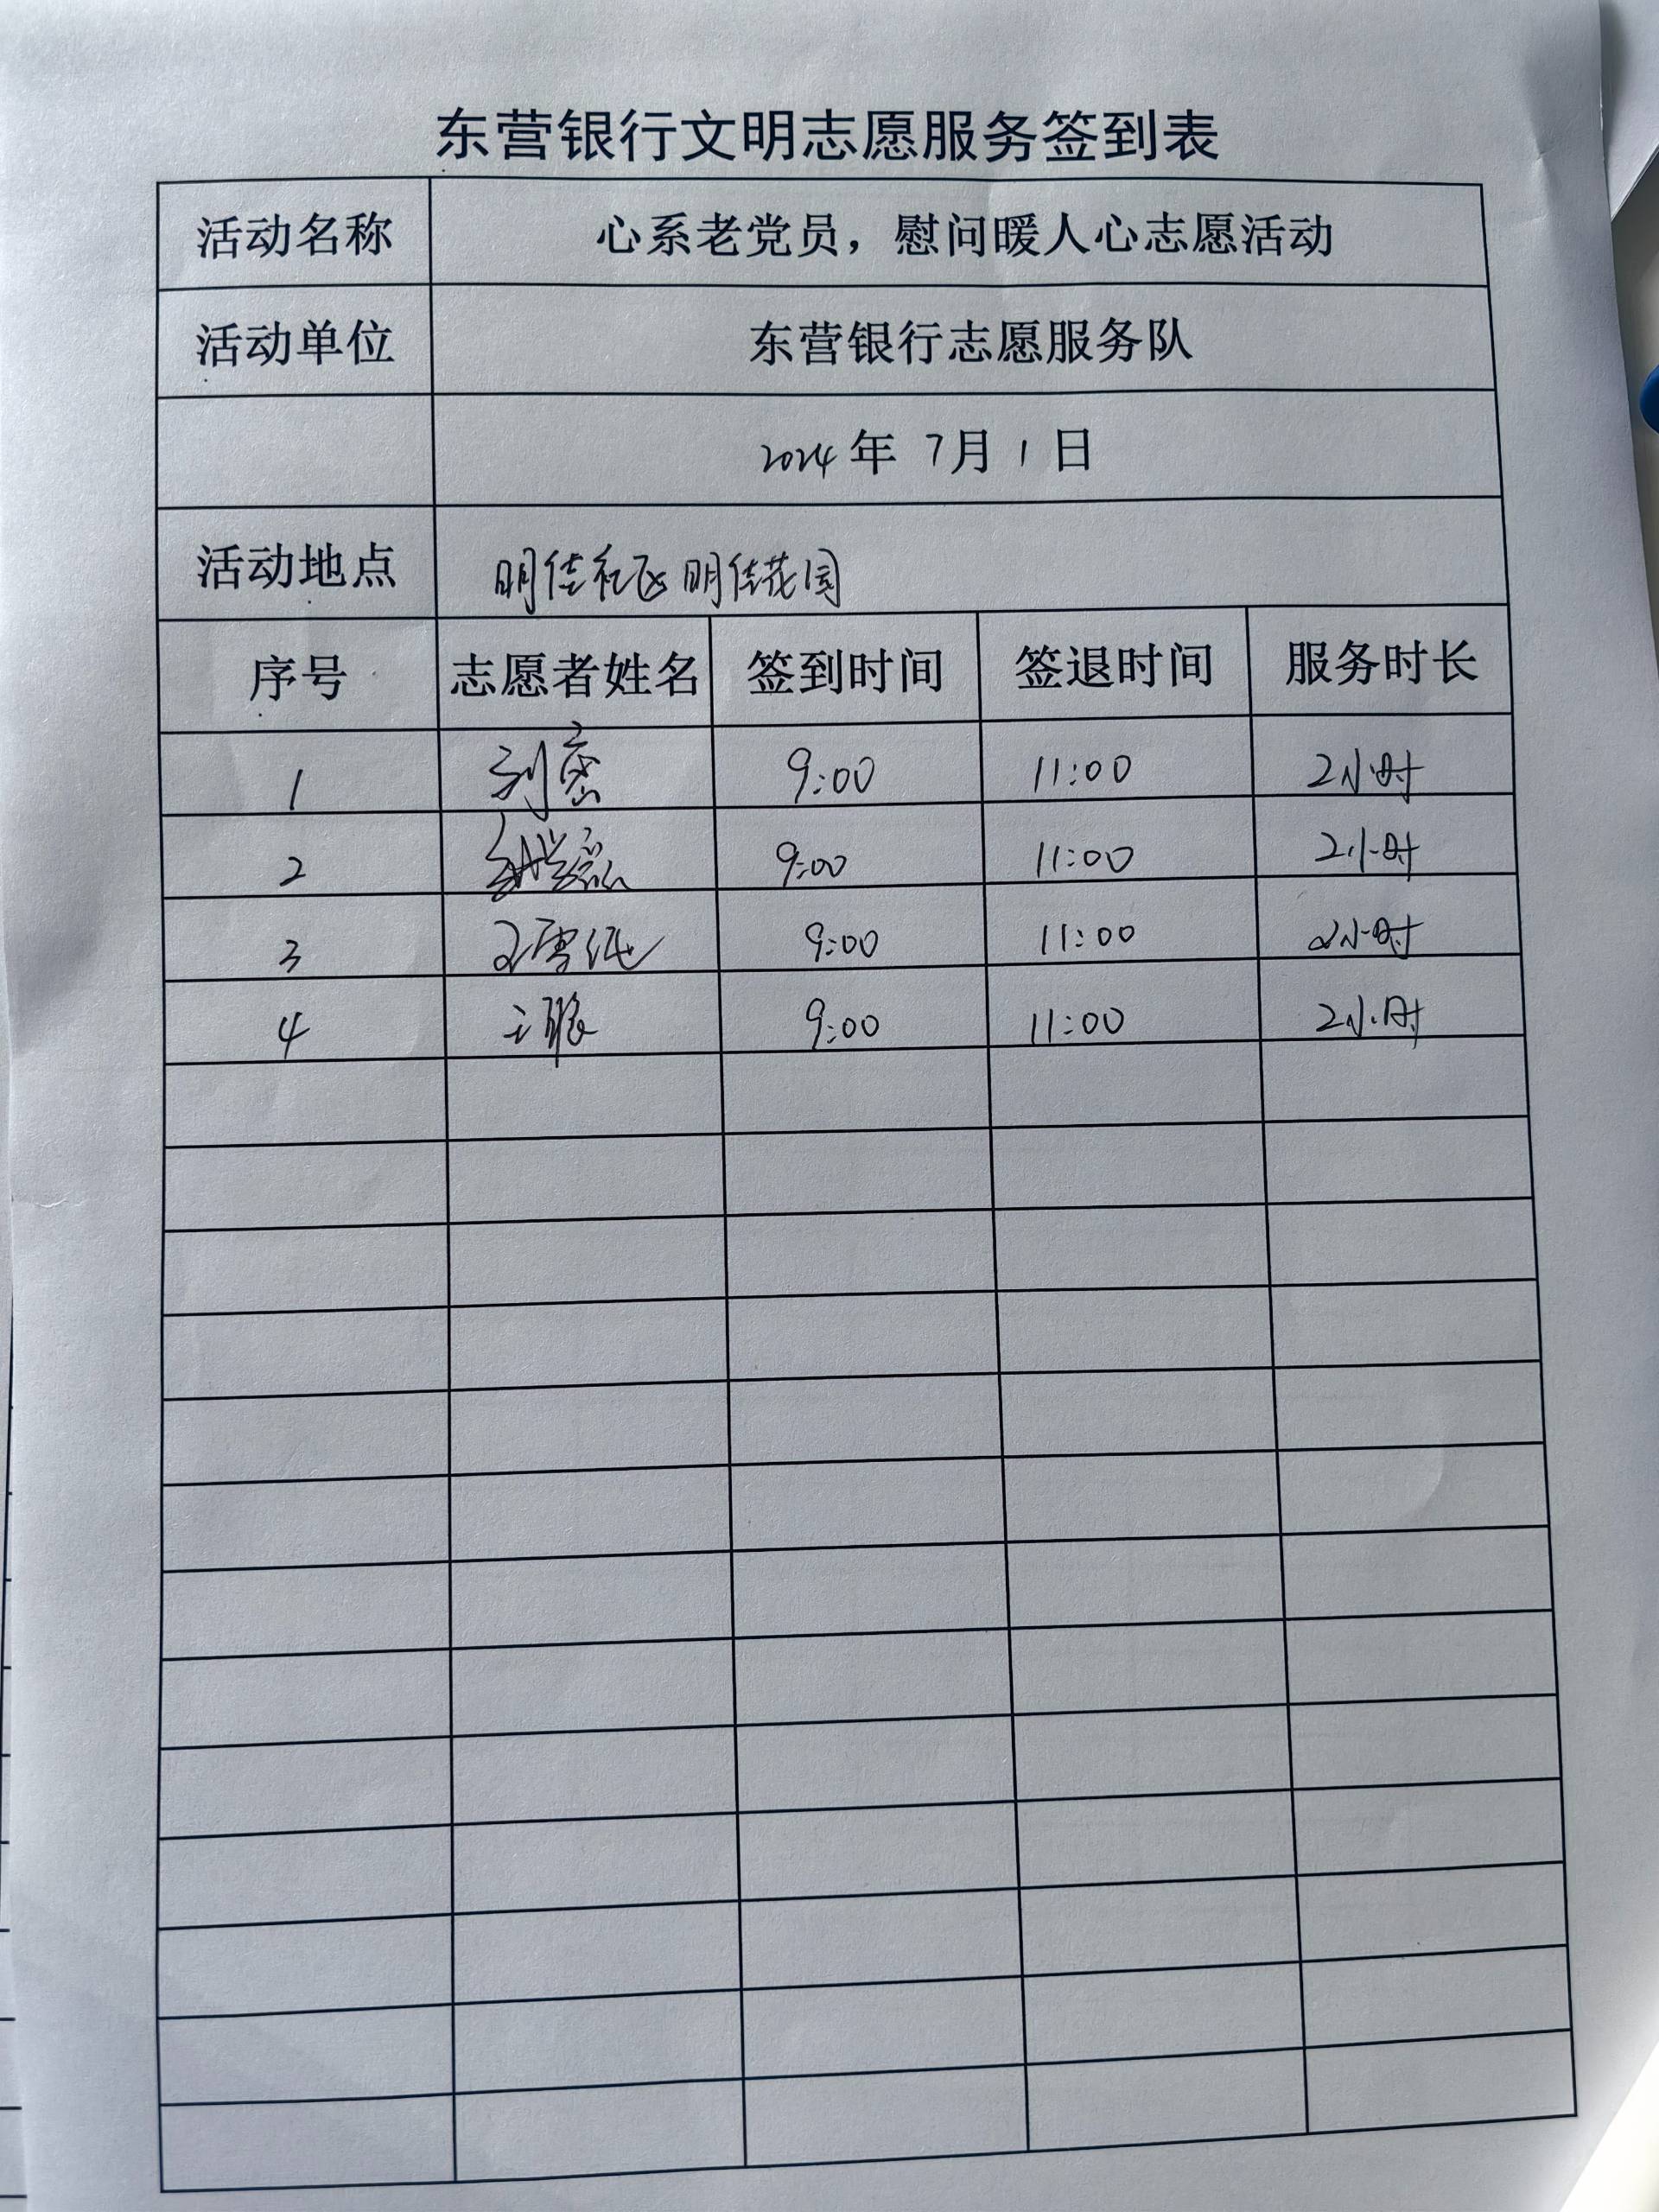 东营银行文明志愿服务签到表
活动名称 心系老党员，慰问暖人心志愿活动
活动单位 东营银行志愿服务队
2024年 7月 1 日
活动地点 明佳社区明佳花园
序号 志愿者姓名 签到时间 签退时间 服务时长
1 9:00 11:00 2小时
2 9:00 11:00 2小时
3 9:00 11:00 2小时
4 9:00 11:00 2小时